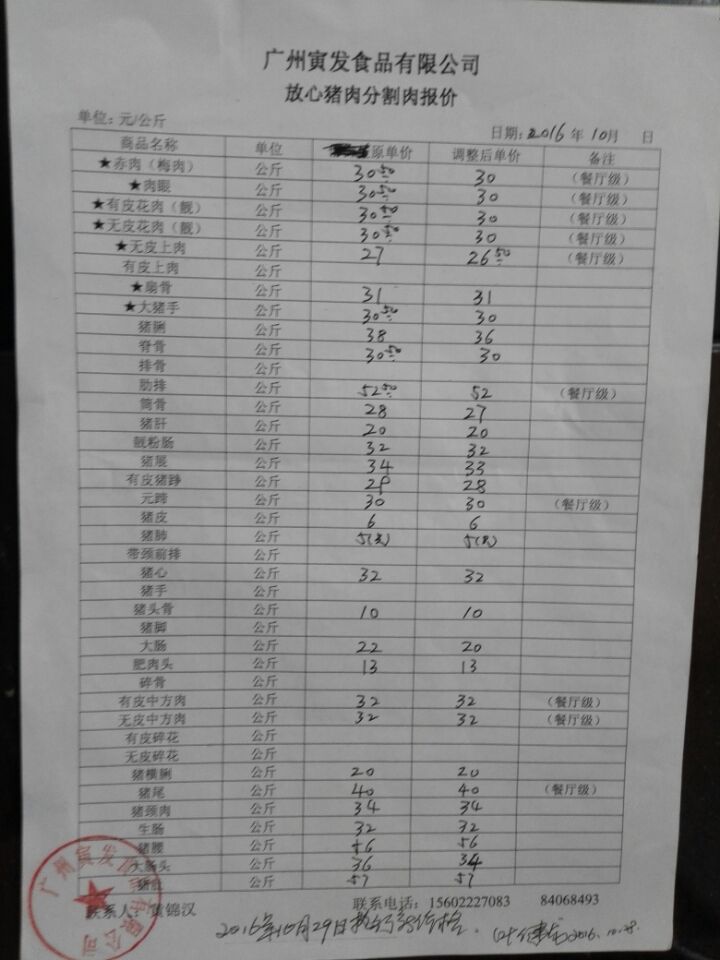 广州寅发食品有限公司
放心猪肉分割肉报价
单位：元/公斤 日期：2016 年 10月 日
商品名称 单位 原单价 调整后单价 备注
★赤肉（梅肉） 公斤 30.50 30 （餐厅级）
★肉眼 公斤 30.50 30 （餐厅级）
★有皮花肉（靓） 公斤 30.50 30 （餐厅级）
★无皮花肉（靓） 公斤 30.50 30 （餐厅级）
★无皮上肉 公斤 27 26.50 （餐厅级）
有皮上肉 公斤
★扇骨 公斤 31 31
★大猪手 公斤 30.50 30
猪脷 公斤 38 36
脊骨 公斤 30.50 30
排骨 公斤
肋排 公斤 52.50 52 （餐厅级）
筒骨 公斤 28 27
猪肝 公斤 20 20
靓粉肠 公斤 32 32
猪展 公斤 34 33
有皮猪踭 公斤 29 28
元蹄 公斤 30 30 （餐厅级）
猪皮 公斤 6 6
猪肺 公斤 5(只) 5(只)
带颈前排 公斤
猪心 公斤 32 32
猪手 公斤
猪头骨 公斤 10 10
猪脚 公斤
大肠 公斤 22 20
肥肉头 公斤 13 13
碎骨 公斤
有皮中方肉 公斤 32 32 （餐厅级）
无皮中方肉 公斤 32 32 （餐厅级）
有皮碎花 公斤
无皮碎花 公斤
猪横脷 公斤 20 20
猪尾 公斤 40 40 （餐厅级）
猪颈肉 公斤 34 34
生肠 公斤 32 32
猪腰 公斤 56 56
大肠头 公斤 36 34
猪肚 公斤 57 57
联系人：黄锦汉 联系电话：15602227083 84068493
2016年10月29日执行新价格. 2016.10.28.
广州寅发食品有限公司